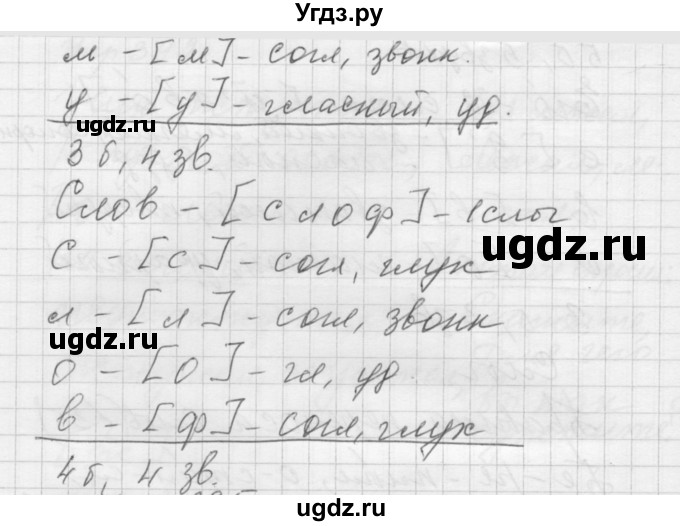 Угдз.ру
м - [м] - согл, звонк.
у - [у] - гласный, уд.
ugdz.ru
3 б, 4 зв.
Слов - [слоф] - 1 слог
ugdz.ru
С - [с] - согл, глух
л - [л] - согл, звонк
ugdz.ru
о - [о] - гл, уд.
ugdz.ru
в - [ф] - согл, глух
4 б, 4 зв.
ugdz.ru